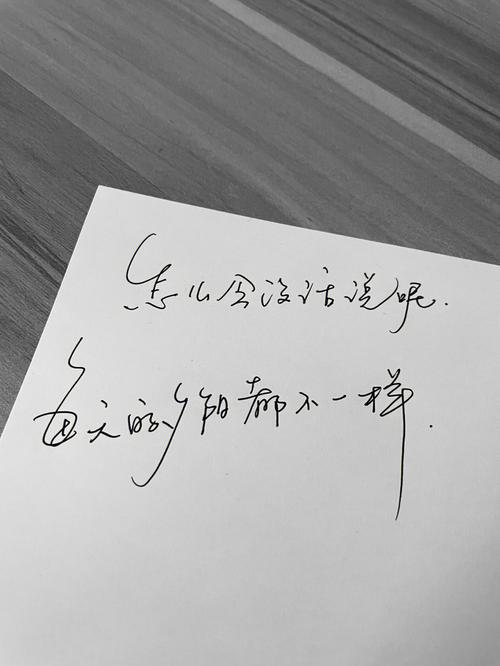 怎么会没话说呢.
每天的夕阳都不一样.